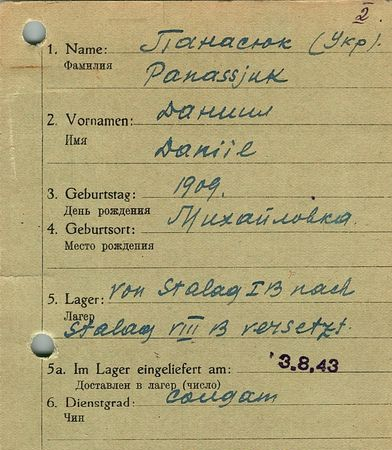 2
1. Name: Панасюк (Укр).
Фамилия
Panassjuk
2. Vornamen: Даниил
Имя
Daniil
3. Geburtstag: 1909.
День рождения
4. Geburtsort: Михайловка
Место рождения
5. Lager: von Stalag I B nach
Лагер
Stalag VIII B versetzt.
5a. Im Lager eingeliefert am: 3.8.43
Доставлен в лагер (число)
6. Dienstgrad: солдат
Чин